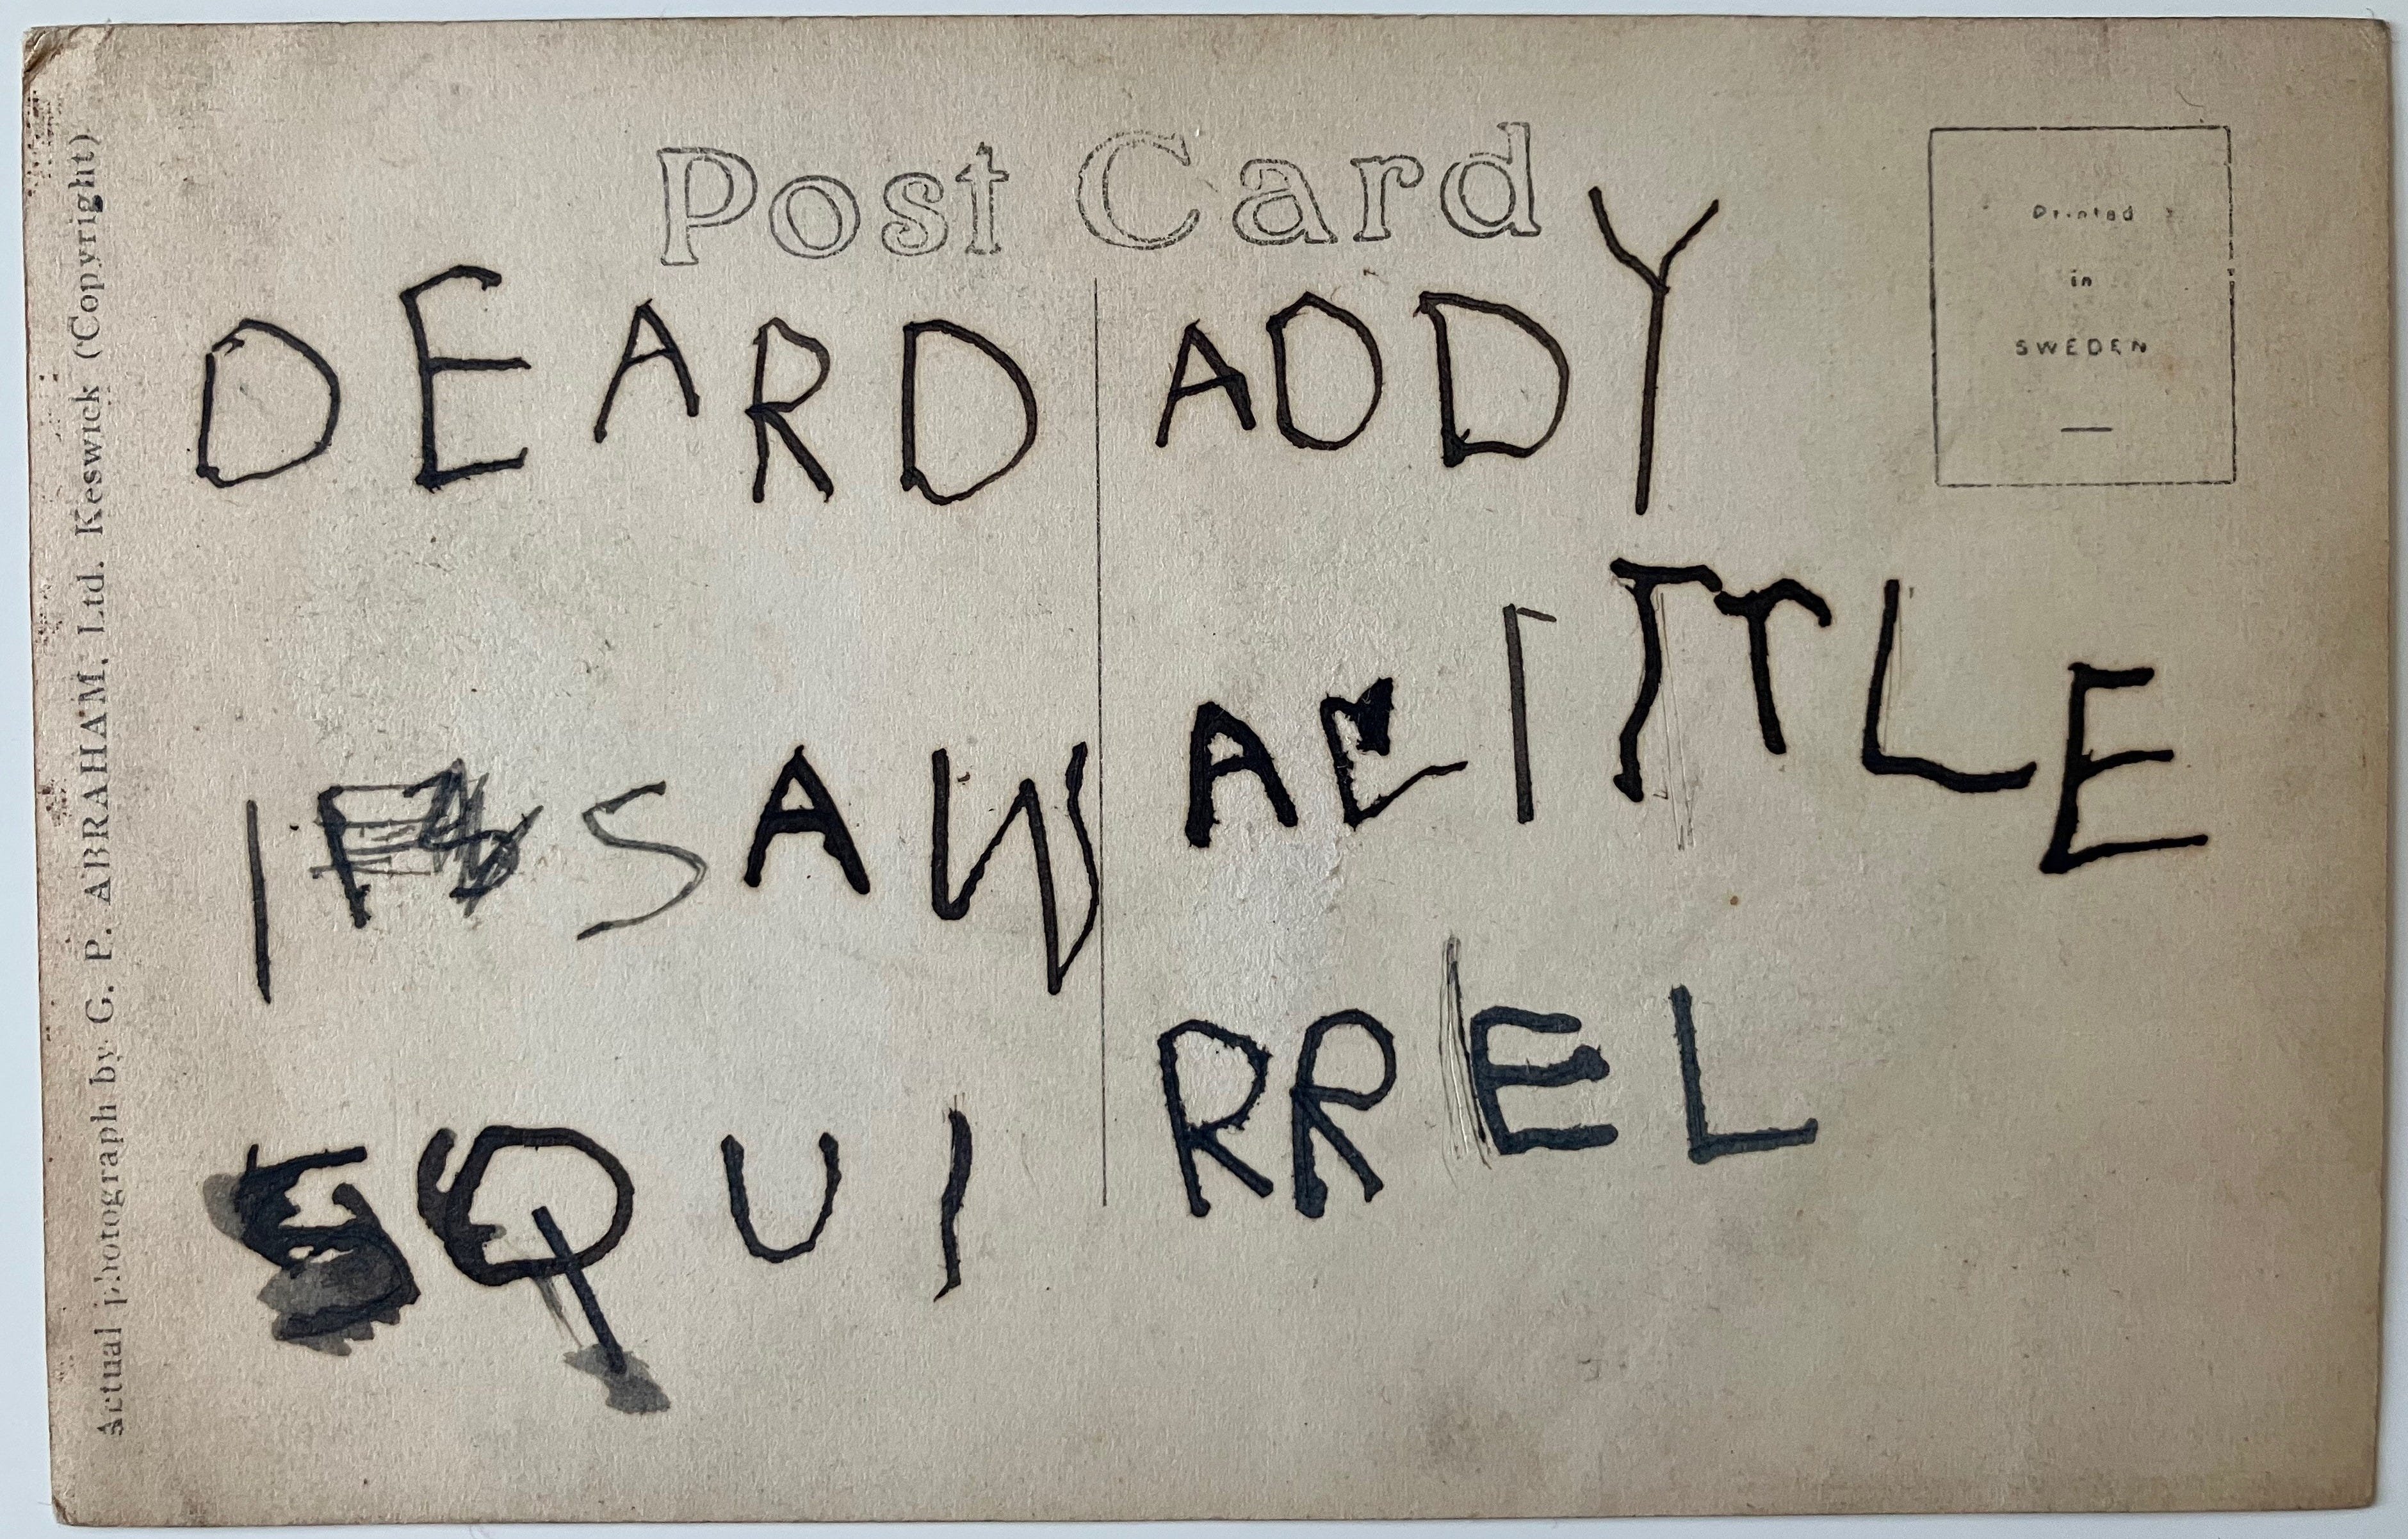 Post Card
Printed
in
SWEDEN
DEAR DADDY
I SAW A LITTLE
SQUIRREL
Actual photograph by G. P. ABRAHAM, Ltd. Keswick (Copyright)